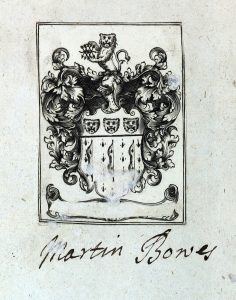 Martin Bowes